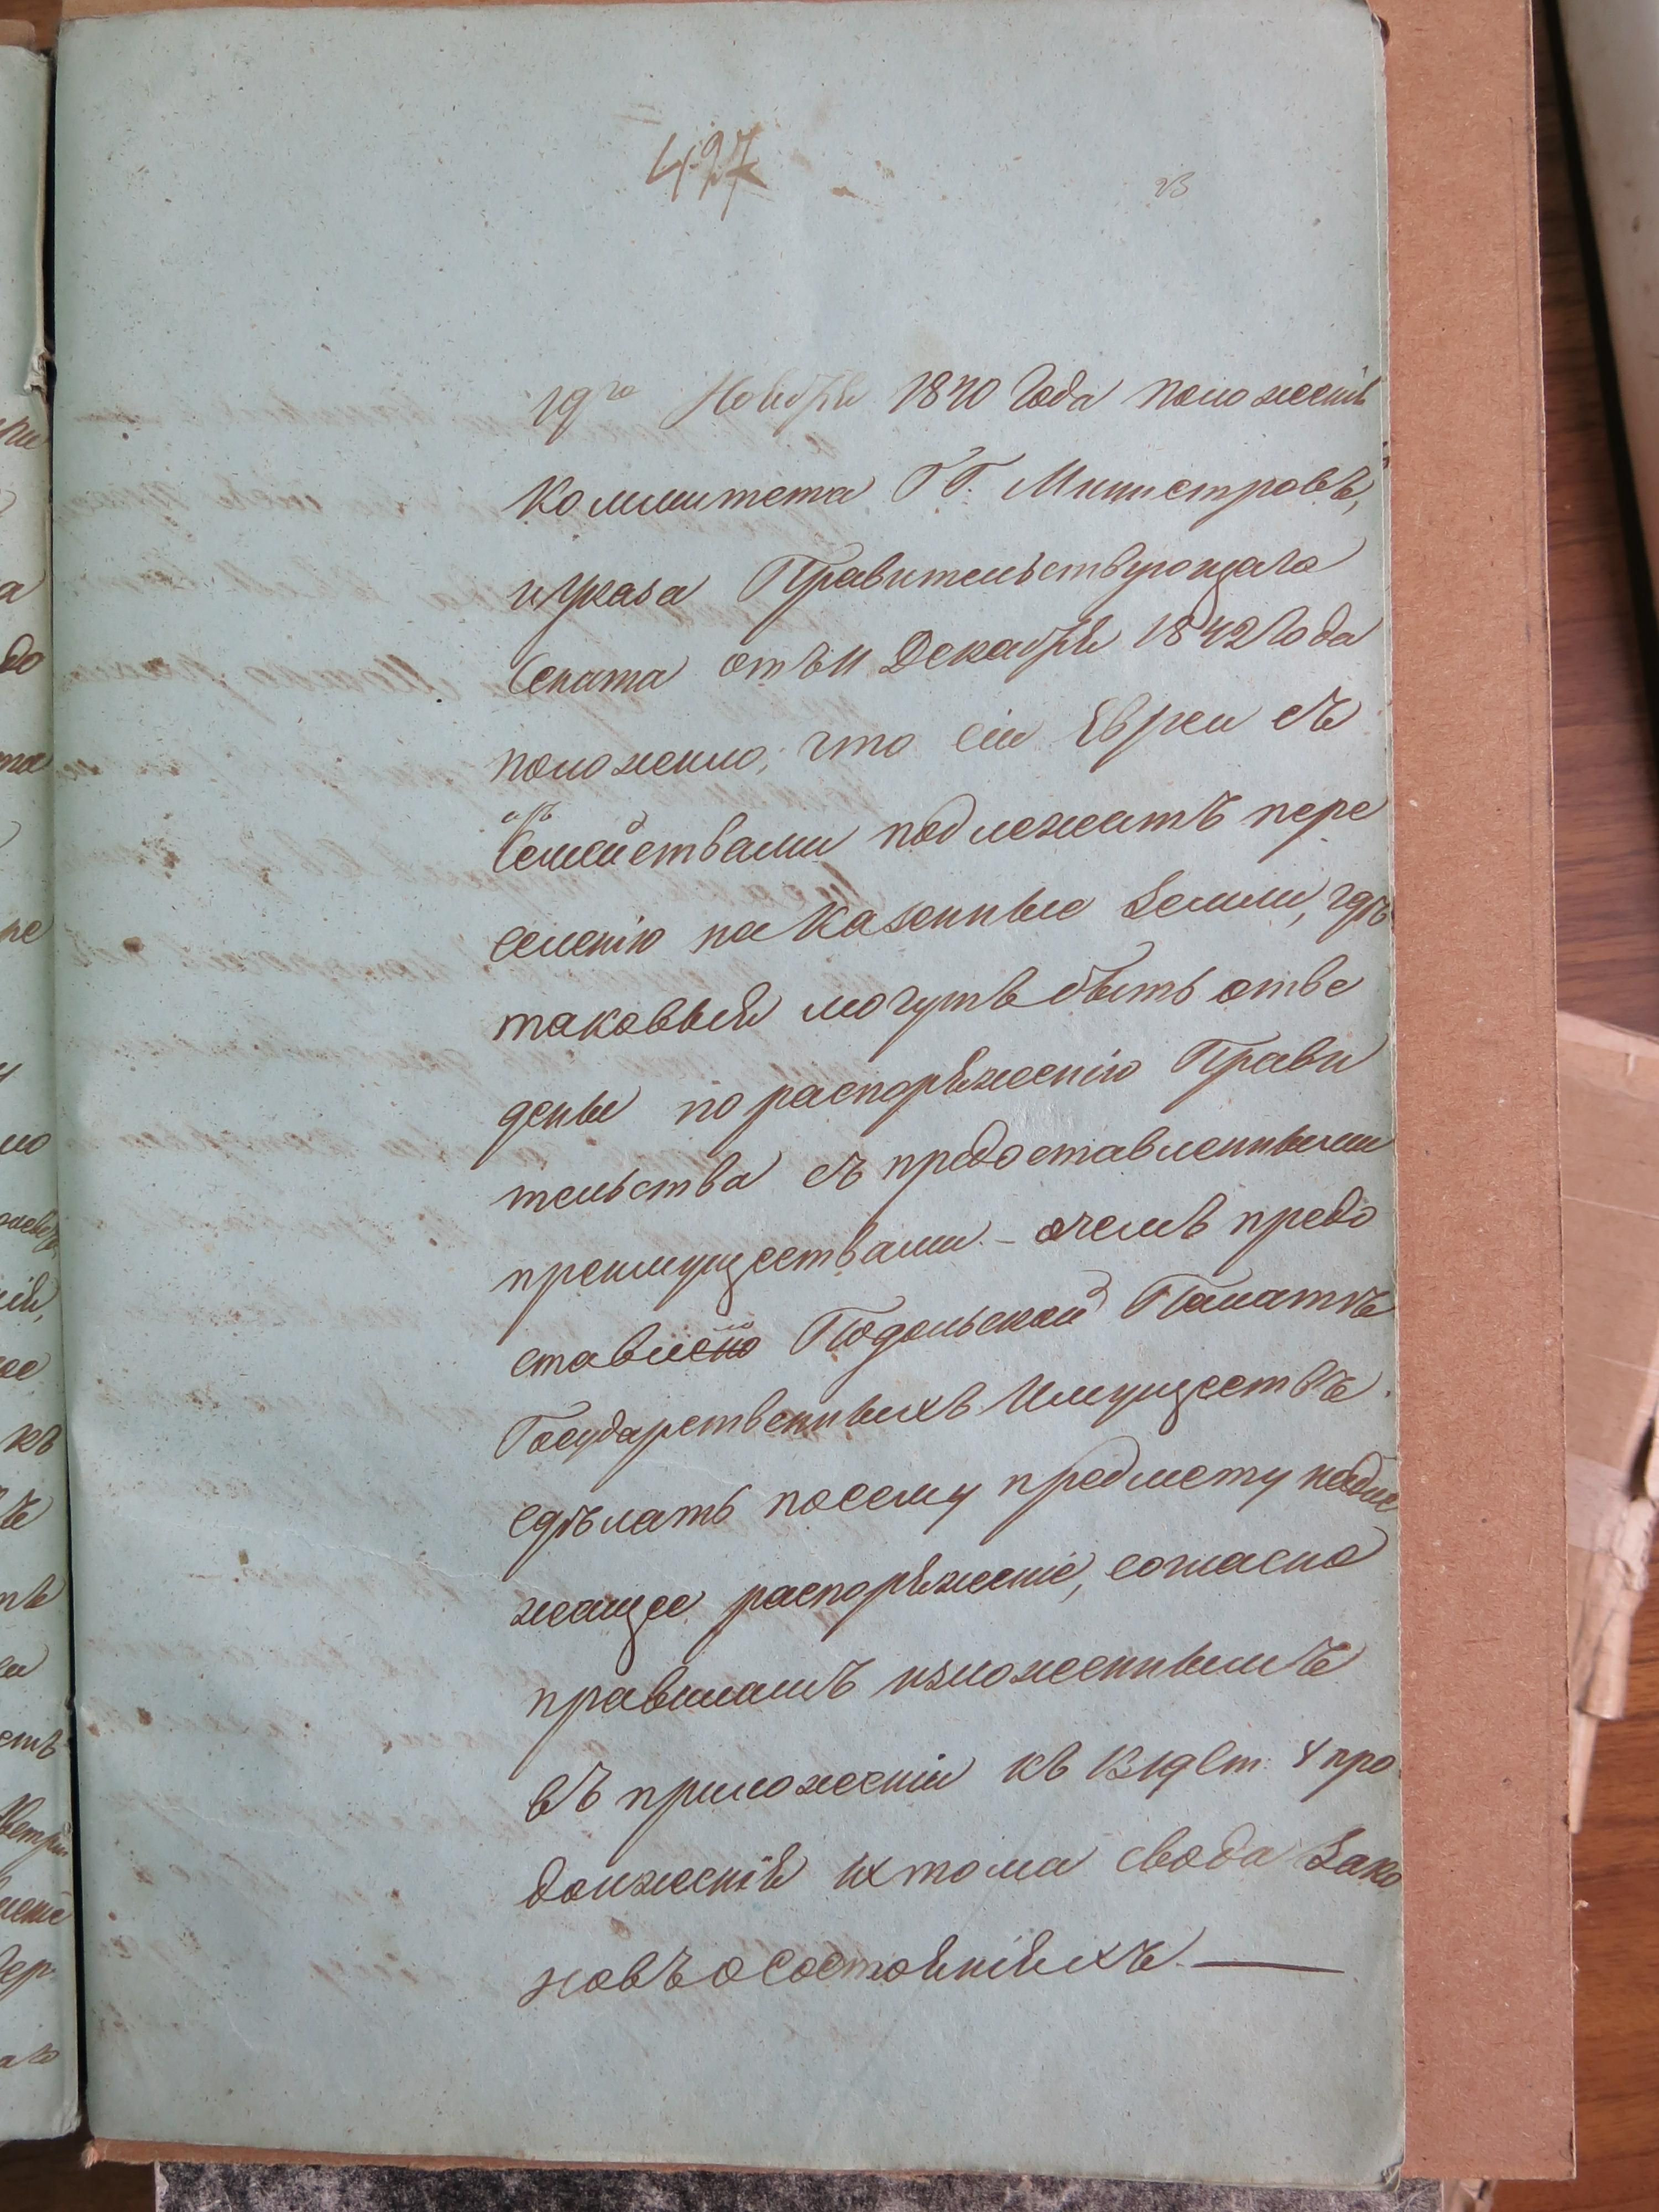 497
23
19го Ноября 1840 года положенія
Коммитета ГГ. Министровъ,
и указа Правительствующаго
Сената отъ 11 Декабря 1842 года
положено, что сіи Евреи съ
ихъ
Семействами подлежатъ пере
селенію на Казенныя Земли, гдѣ
таковыя могутъ быть отве
дены по распоряженію Прави
тельства съ предоставленными
преимуществами. – о чемъ предо
ставлено Подольской Палатѣ
Государственныхъ Имуществъ
сдѣлать посему предмету надле
жащее распоряженіе, согласно
правиламъ изложеннымъ
въ приложеніи къ 1319 ст. 4 про
долженія IX тома свода Зако
новъ о Состояніяхъ. —